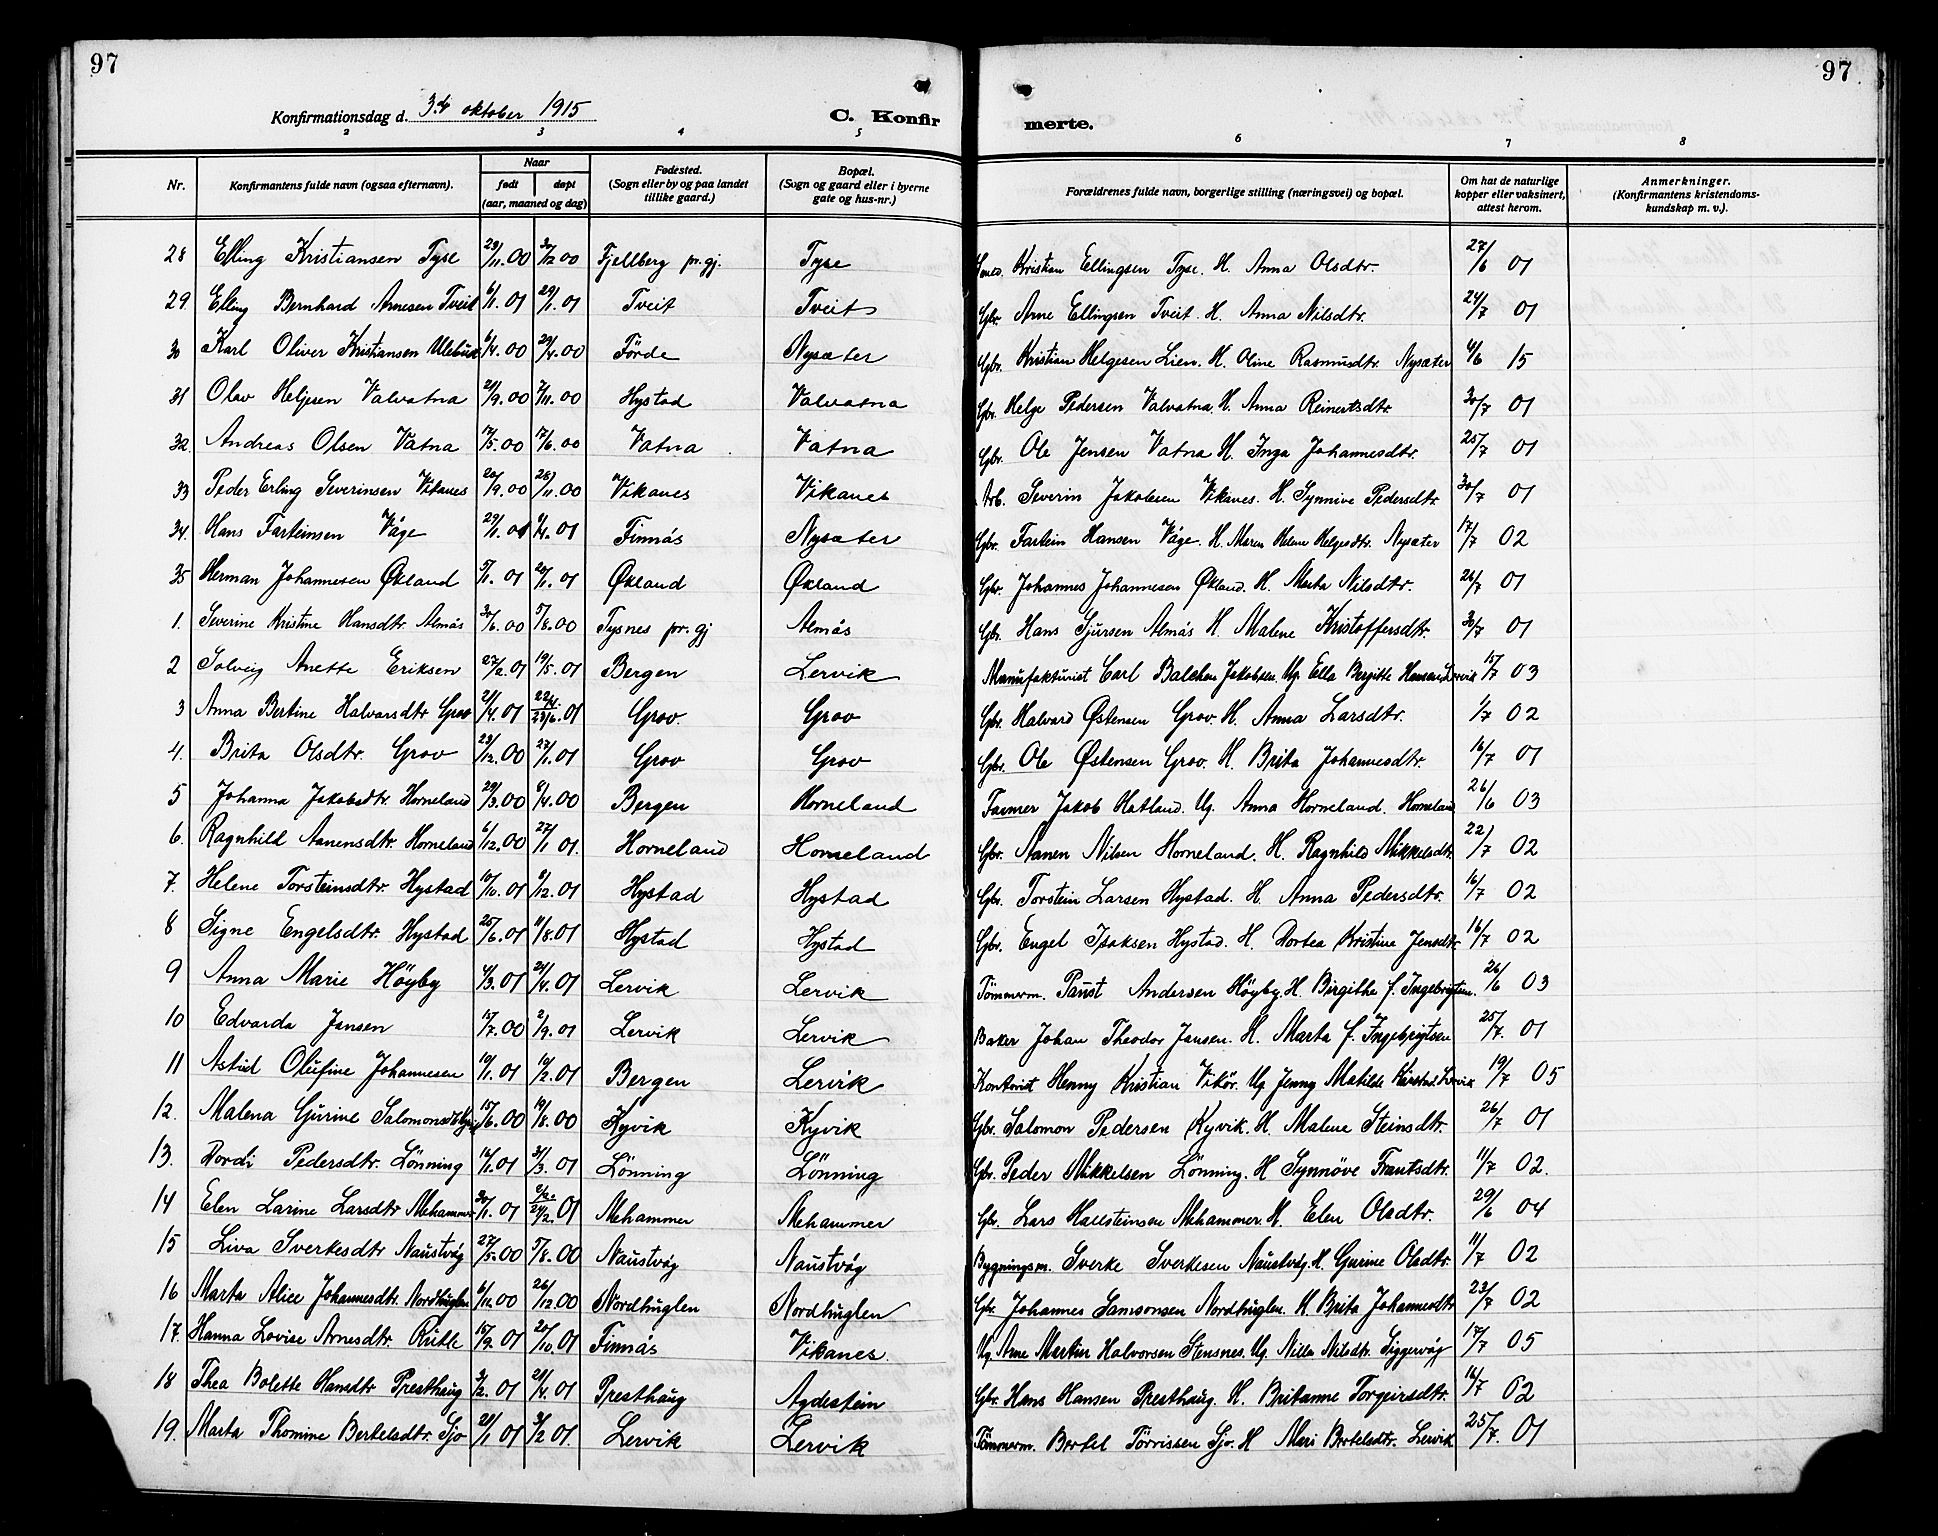 97
97
Konfirmationsdag d. 3die oktober 1915
C. Konfirmerte.
2 3 4 5 6 7 8
Nr. Konfirmantens fulde navn (ogsaa efternavn). Naar født døpt (aar, maaned og dag) Fødested. (Sogn eller by og paa landet tillike gaard.) Bopæl. (Sogn og gaard eller i byerne gate og hus-nr.) Forældrenes fulde navn, borgerlige stilling (næringsvei) og bopæl. Om hat de naturlige kopper eller vaksinert, attest herom. Anmerkninger. (Konfirmantens kristendomskundskap m. v.).
28 Elling Kristiansen Tyse 23/11.00 30/12 00 Fjellberg pr.gj. Tyse Smed. Kristian Ellingsen Tyse. H. Anna Olsdtr. 27/6 01
29. Elling Bernhard Arnesen Tveit 6/1.01 29/1.01 Tveit Tveit Gbr. Arne Ellingsen Tveit. H. Anna Nilsdtr. 24/7 01
30 Karl Oliver Kristiansen 6/4.00 29/4.00 Førde Nysæter Gbr. Kristian Helgesen Lien. H. Oline Rasmusdtr. Nysæter 4/6 15
31 Olav Heljesen Valvatna 21/9.00 7/11.00 Hystad Valvatna Gbr. Helge Pedersen Valvatna. H. Anna Reinertsdtr. 30/7 01
32. Andreas Olsen Vatna 12/5.00 17/6.00 Vatna Vatna Gbr. Ole Jensen Vatna H. Inga Johannesdtr. 25/7 01
33 Peder Erling Severinsen Vikanes 20/9.00 28/11.00 Vikanes Vikanes Arb. Severin Jakobsen Vikanes. H. Synnive Pedersdtr. 30/7 01
34. Hans Farteinsen Våge 29/1.01 /4.01 Finnås Nysæter Gbr. Fartein Hansen Våge. H. Maren Helene Helgesdtr. Nysæter 17/7 02
35 Herman Johannesen Økland 5/1.01 20/1.01 Økland Økland Gbr. Johannes Johannesen Økland. H. Marta Nilsdtr. 26/7 01
1. Severine Kristine Hansdtr. Almås 30/6.00 5/8.00 Tysnes pr.gj Almås Gbr. Hans Sjursen Almås H. Malene Kristoffersdtr. 30/7 01
2 Solveig Anette Eriksen 27/2.01 19/5.01 Bergen Lervik Manufakturist Carl Balchen Jakobsen Ug. Ella Birgitte Hansen Lervik 15/7 03
3 Anna Bertine Halvarsdtr Grov 21/4.01 22/4. 23/6.01 Grov Grov Gbr. Halvard Østensen Grov. H. Anna Larsdtr. 1/7 02
4. Brita Olsdtr. Grov 23/12.00 27/1.01 Grov Grov Gbr. Ole Østensen Grov. H. Brita Johannesdtr. 16/7 01
5 Johanna Jakobsdtr. Horneland 29/3.00 8/4.00 Bergen Horneland Farmer Jakob Hatland. Ug. Anna Horneland. Horneland 26/6 03
6. Ragnhild Aanensdtr. Horneland 6/12.00 27/1 01. Horneland Horneland Gbr. Aanen Nilsen Horneland. H. Ragnhild Mikkelsdtr. 22/7 02
7. Helene Torsteinsdtr. Hystad 10/10.01 8/12.01 Hystad Hystad Gbr. Torstein Larsen Hystad. H. Anna Pedersdtr. 16/7 02
8 Signe Engelsdtr. Hystad 25/6.01 11/8.01 Hystad Hystad Gbr. Engel Isaksen Hystad. H. Dortea Kristine Jensdtr 16/7 02
9 Anna Marie Höyby 4/3.01 21/4.01 Lervik Lervik Tömmerm. Paust Andersen Höyby. H. Birgithe f. Ingebrigtsen. 26/6 03
10 Edvarda Jansen 17/7.00 2/9.01 Lervik Lervik Baker Johan Theodor Jansen. H. Marta f. Ingebrigtsen 25/7. 01
11 Astrid Olufine Johannesen 10/1.01 10/2.01 Bergen Lervik Kontorist Henny Kristian Vikör. Ug. Jenny Matilde Lervik 19/7 05
12. Malena Gurine Salomonsdtr Kyvik 15/6.00 19/8.00 Kyvik Kyvik Gbr. Salomon Pedersen Kyvik. H. Malene Steinsdtr. 26/7 01
13. Dordi Pedersdtr. Lönning 14/1.01 31/3.01 Lönning Lönning Gbr. Peder Mikkelsen Lönning. H Synnöve Frantsdtr. 11/7 02.
14 Elen Larine Larsdtr Mehammer 30/1.01 2/2. 24/2.01 Mehammer Mehammer Gbr. Lars Hallsteinsen Mehammer H. Elen Olsdtr. 29/6 04
15 Liva Sverkesdtr Naustvåg 27/5.00 5/8.00 Naustvåg Naustvåg Bygningsm. Sverke Sverkesen Naustvåg. H Gurine Olsdtr. 11/7 02
16 Marta Alice Johannesdtr. Nordhuglen 6/12.00 26/12 00 Nordhuglen Nordhuglen Gbr. Johannes Samsonsen Nordhuglen. H Brita Johannesdtr 23/7 02
17. Hanna Lovise Arnesdtr. 15/9.01 20/10 01 Finnås Vikanes. Ug. Arne Martin Halvorsen Stensnes. Ug. Nilla Nilsdtr. Siggervåg 17/7 05
18 Thea Bolette Hansdtr Presthaug 3/2.01 21/4.01 Presthaug Agdestein Gbr. Hans Hansen Presthaug. H. Britanne Torgeirsdtr. 16/7 02
19. Marta Thomine Bertelsdtr. Sjo 20/1 01 3/2 01. Lervik Lervik Tömmerm. Bertel Törrissen Sjo. H Mari Bertelsdtr. Lervik 25/7. 01